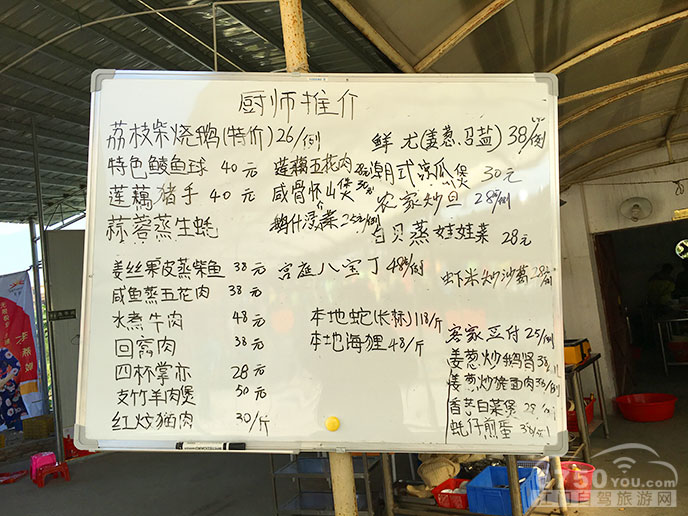 厨师推介
荔枝柴烧鹅(特价)26/例
鲜尤(姜葱.召盐)38/例
特色鲮鱼球 40元
莲藕五花肉
潮式凉瓜煲 30元
莲藕猪手 40元
咸骨怀山煲
农家炒旦 28/例
蒜蓉蒸生蚝
鹅什浸菜25元/例
白贝蒸娃娃菜 28元
姜丝果皮蒸柴鱼 38元
宫庭八宝丁 48/例
虾米炒沙葛28/例
咸鱼蒸五花肉 38元
水煮牛肉 48元
本地蛇 118/斤
回窩肉 38元
本地海狸 48/斤
四杯掌亦 28元
支竹羊肉煲 50元
红炆猫肉 30/斤
客家豆付 25/例
姜葱炒鹅肾38/例
姜葱炒猪面肉38/例
香芋白菜煲 28/例
蚝仔煎蛋 38/例
0750YOU.com
江门自驾旅游网